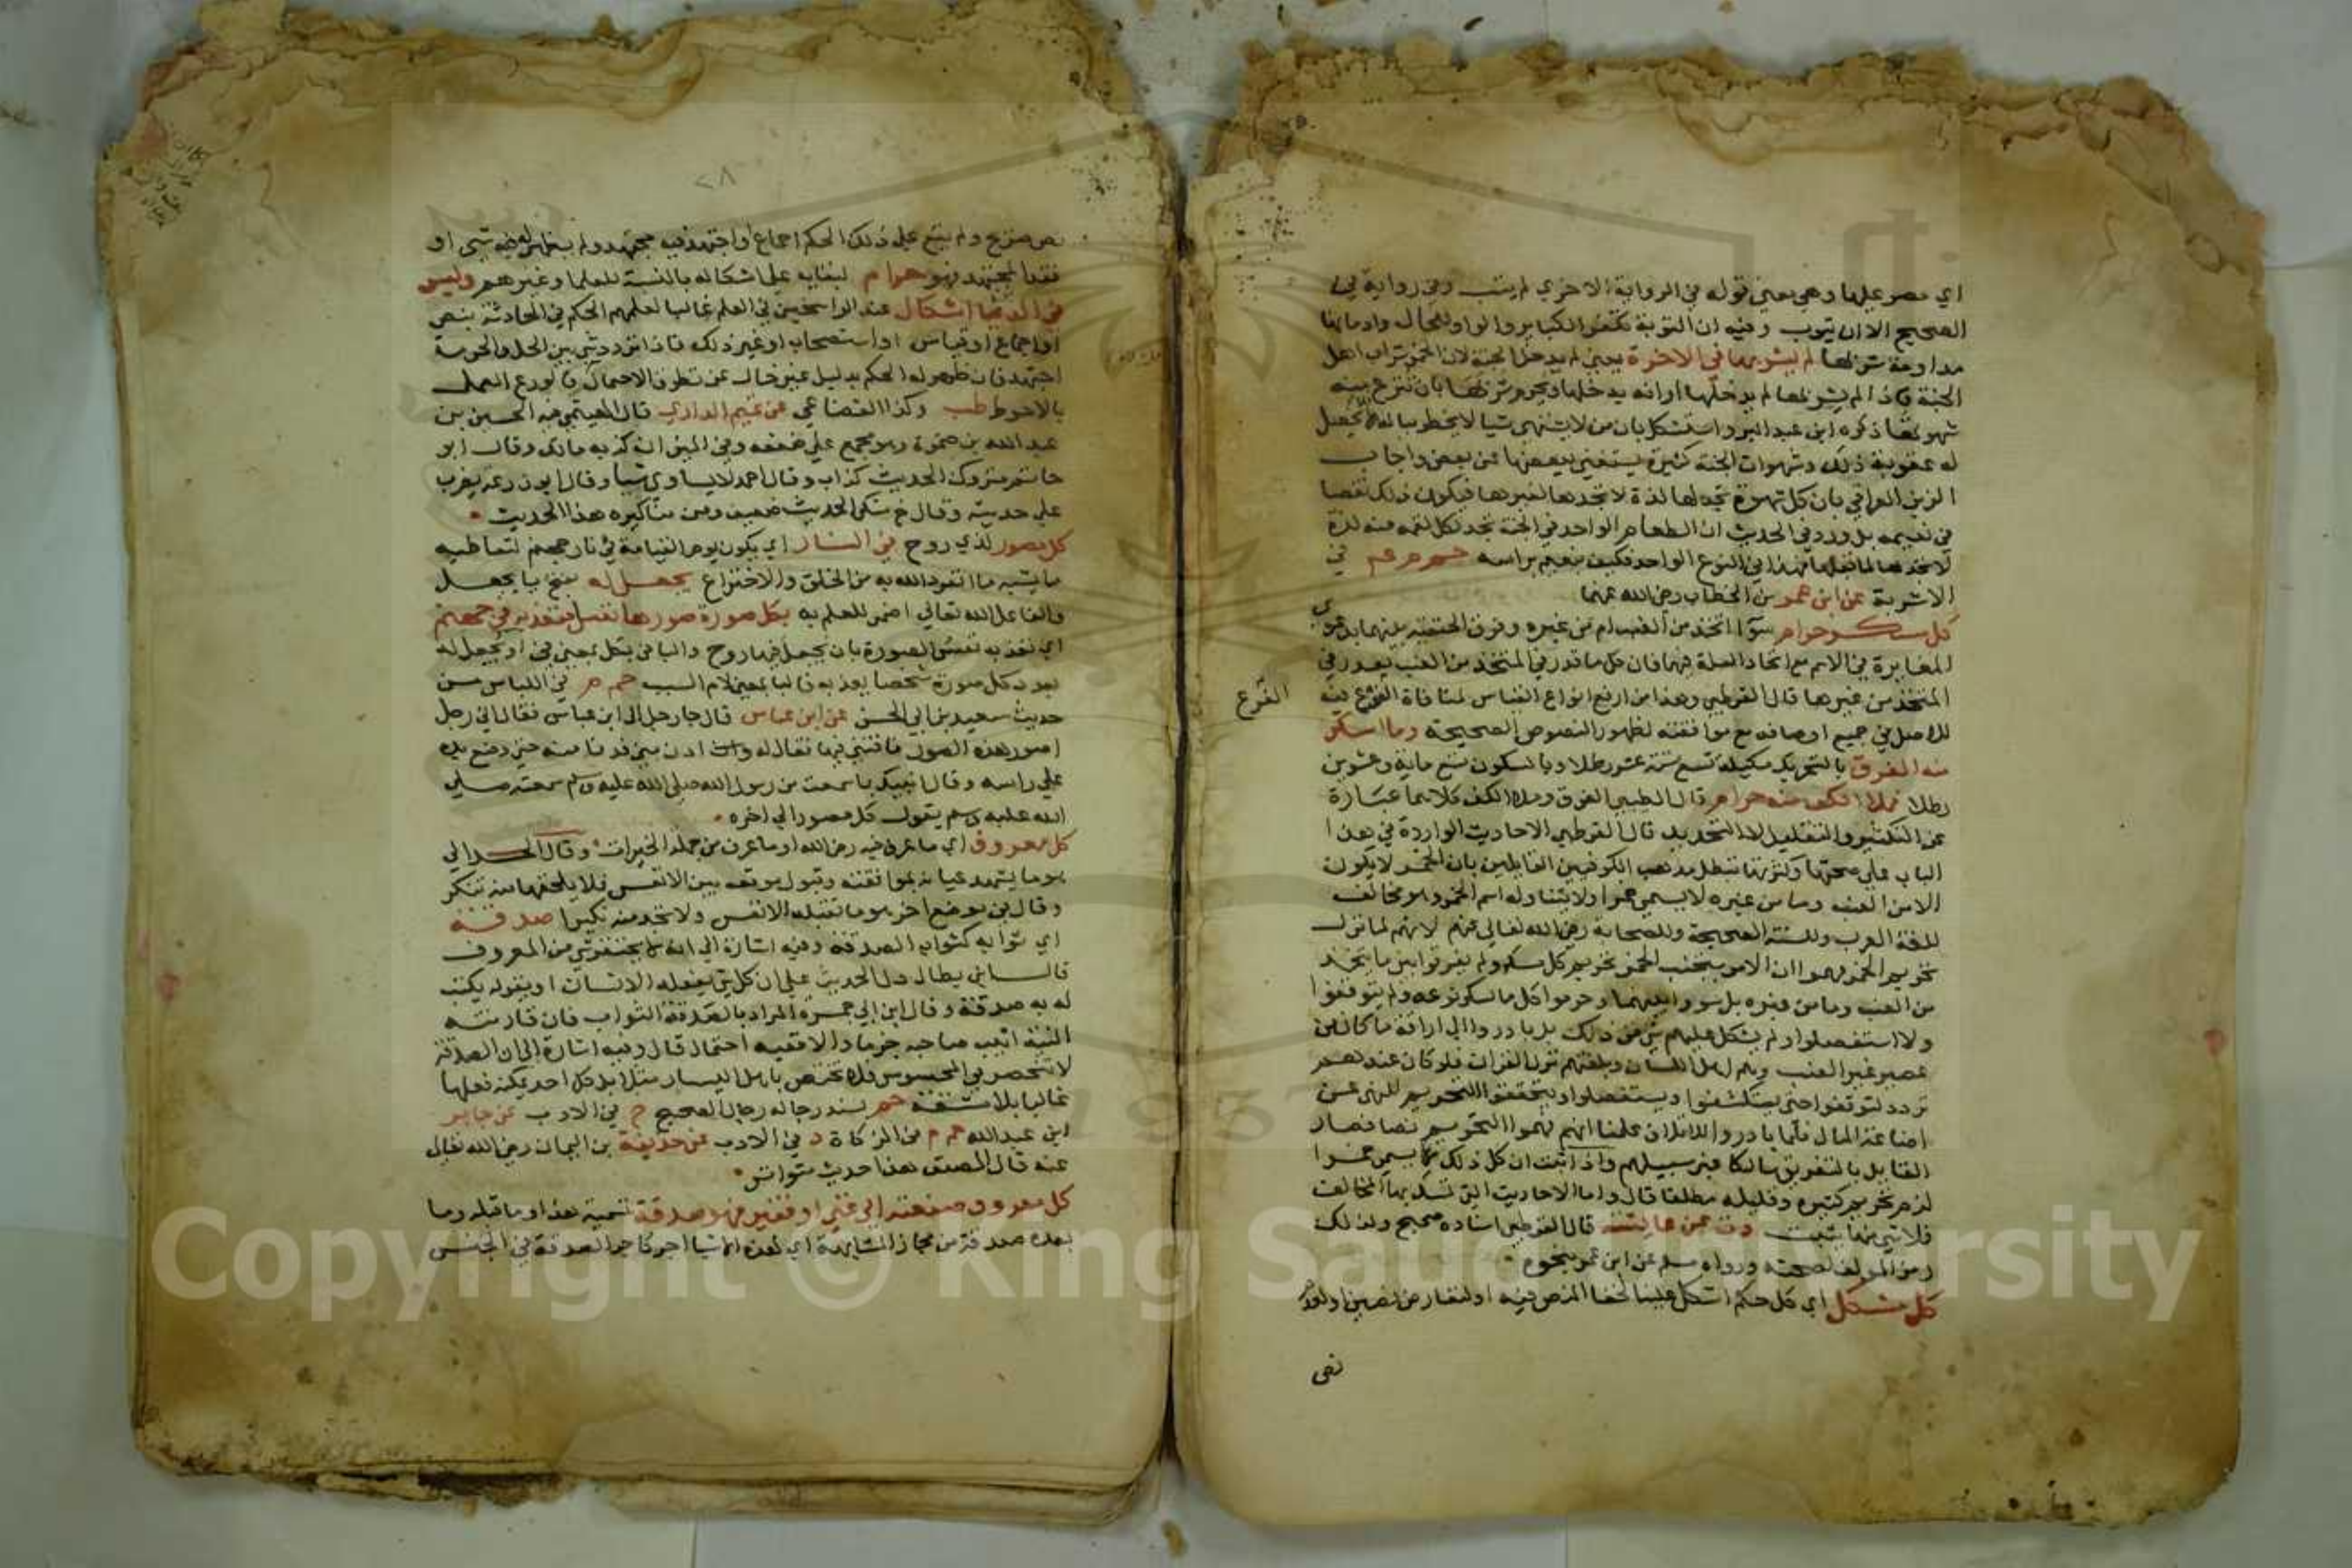 اي مصر عليها وهي بعين قوله في الرواية الاخري لم يتب وفي رواية في
الصحيح الا ان يتوب وفيه ان التوبة تكفر الكبائر والواو للحال وادمانها
مداومة شربها لم يشربها في الاخرة يعني لم يدخل الجنة لان الخمر شراب اهل
الجنة فاذا لم يشربها لم يدخلها او انه يدخلها ويحرم شربها بان تنزع منه
شهوتها ذكره ابن عبد البر واستشكل بان من لا يشتهي شيا لا يخطر بباله لا يحصل
له عقوبة ذلك وشهوات الجنة كثيرة يستغني ببعضها عن بعض واجاب
الزين العراقي بان كل شهوة تجد لها لذة لا تجدها لغيرها فيكون ذلك نقصا
في نعيمه بل ورد في الحديث ان الطعام الواحد في الجنة تجد لكل لقمة منه لذة
لا تجدها لما قبلها فهذا في النوع الواحد فكيف بنعيم براسه حم م عم في
الاشربة عن ابن عمر بن الخطاب رضي الله عنهما
كل مسكر حرام سوآ اتخذ من العنب ام من غيره وفرق الحنفية بينهما بدعوي
المغايرة في الاسم مع اتحاد العلة فيهما فان كل ما قدر في المتخذ من العنب يقدر في
المتخذ من غيرها قال القرطبي وهذا من ارفع انواع القياس لمساواة الفرع فيه
الفرع
للاصل في جميع اوصافه مع موافقته لظهور النصوص الصحيحة وما اسكر
منه الفرق بالتحريك مكيلة تسع ستة عشر رطلا وبالسكون تسع ماية وعشرين
رطلا فملا الكف منه حرام قال الطيبي الفرق وملا الكف كلاهما عبارة
عن التكثير والتقليل لا التحديد قال القرطبي الاحاديث الواردة في هذا
الباب علي صحتها وكثرتها تبطل مذهب الكوفيين القايلين بان الخمر لا يكون
الا من العنب وما من غيره لا يسمي خمرا ولا يتناوله اسم الخمر وهو مخالف
للغة العرب وللسنة الصحيحة وللصحابة رضي الله تعالي عنهم لانهم لما نزل
تحريم الخمر فهموا ان الامر بتجنب الخمر تحريم كل مسكر ولم يفرقوا بين ما يتخذ
من العنب وما من غيره بل سووا بينهما وحرموا كل ما يسكر نوعه ولم يتوقفوا
ولا استفصلوا ولم يشكل عليهم شي من ذلك بل بادروا الي اراقة ما كان من
عصير غير العنب وهم اهل اللسان وبلغتهم نزل القران فلو كان عندهم
تردد لتوقفوا حتي يستكشفوا ويستفصلوا ويتحققوا التحريم للنهي عن
اضاعة المال فلما بادروا للاتلاف علمنا انهم فهموا التحريم نصا فصار
القايل بالتفريق سالكا غير سبيلهم واذا ثبت ان كل ذلك يسمي خمرا
لزم تحريم كثيره وقليله مطلقا قال واما الاحاديث التي تمسك بها المخالف
فلا شي منها يثبت د ت عن عايشة قال القرطبي اسناده صحيح ولذلك
رمز المولف لصحته ورواه مسلم عن ابن عمر بنحوه
كل مشكل اي كل حكم اشكل علينا لخفا النص فيه او لتعارض نصين او لفقد
نص
٢٨
نص صريح ولم يقع علي ذلك الحكم اجماع او اجتهد فيه مجتهد ولم يظهر له فيه شي او
فقد المجتهد فهو حرام لبقايه علي اشكاله بالنسبة للعلما وغيرهم وليس
في الدين اشكال عند الراسخين في العلم غالبا لعلمهم الحكم في الحادثة بنص
او اجماع او قياس او استصحاب او غير ذلك فاذا تردد شي بين الحل والحرمة
اجتهد فان ظهر له الحكم بدليل غير خال عن تطرق الاحتمال فالورع العمل
بالاحوط طب وكذا القضاعي عن تميم الداري قال الهيثمي فيه الحسين بن
عبد الله بن ضمرة وهو مجمع علي ضعفه وفي الميزان كذبه مالك وقال ابو
حاتم متروك الحديث كذاب وقال احمد لا يساوي شيا وقال ابو زرعة يضرب
علي حديثه وقال خ منكر الحديث ضعيف ومن مناكيره هذا الحديث
كل مصور لذي روح في النار اي يكون يوم القيامة في نار جهنم لتعاطيه
ما يشبه ما انفرد الله به من الخلق والاختراع يجعل له بفتح يا يجعل
والفاعل الله تعالي اضمر للعلم به بكل صورة صورها نفس فتعذبه في جهنم
اي تعذبه نفس الصورة بان يجعل فيها روح والبا في بكل بمعني في او يجعل له
بعدد كل صورة شخصا يعذبه فالبا بمعني لام السبب حم م في اللباس من
حديث سعيد بن ابي الحسن عن ابن عباس قال جا رجل الي ابن عباس فقال اني رجل
اصور هذه الصور فافتني فيها فقال له ادن مني فدنا منه حتي وضع يده
علي راسه وقال انبيك بما سمعت من رسول الله صلي الله عليه وسلم سمعته صلي
الله عليه وسلم يقول كل مصور الي اخره
كل معروف اي ما عرف فيه رضي الله او ما عرف من جملة الخيرات وقال الحرالي
هو ما يشهد عيانه بموافقته وقبول موقعه بين الانفس فلا يلحقها منه تنكر
وقال في موضع اخر هو ما تقبله الانفس ولا تجد منه نكيرا صدقة
اي ثوابه كثواب الصدقة وفيه اشارة الي انه لا يحتقر شي من المعروف
قال ابن بطال دل الحديث علي ان كل شي يفعله الانسان او يقوله يكتب
له به صدقة وقال ابن ابي جمرة المراد بالصدقة الثواب فان قارنته
النية اثيب صاحبه جزما والا ففيه احتمال قال وفيه اشارة الي ان الصدقة
لا تنحصر في المحسوس فلا تختص باهل اليسار مثلا بل كل احد يمكنه فعلها
غالبا بلا مشقة حم بسند رجاله رجال الصحيح خ في الادب عن جابر
ابن عبد الله حم م في الزكاة د في الادب عن حذيفة بن اليمان رضي الله تعالي
عنه قال المصنف هذا حديث متواتر
كل معروف صنعته الي غني او فقير فهو صدقة تسمية هذا وما قبله وما
بعده صدقة من مجاز المشابهة اي لهذه الاشيا اجر كاجر الصدقة في الجنس
Copyright © King Saud University
1957